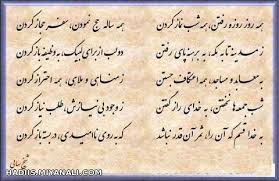 همه روز روزه رفتن، همه شب نماز کردن همه ساله حج نمودن، سفر حجاز کردن
ز مدینه تا به مکه، به برهنه پای رفتن دو لب از برای لبیک، به وظیفه باز کردن
به معابد و مساجد، همه اعتکاف جستن ز مناهی و ملاهی، همه احتراز کردن
شب جمعه‌ها نخفتن، به خدای راز گفتن ز وجود بی نیازش، طلب نیاز کردن
به خدا قسم که آن را، ثمر آن قدر نباشد که به روی ناامیدی، در بسته باز کردن
شیخ بهائی
HADIIS.MIYANALI.COM